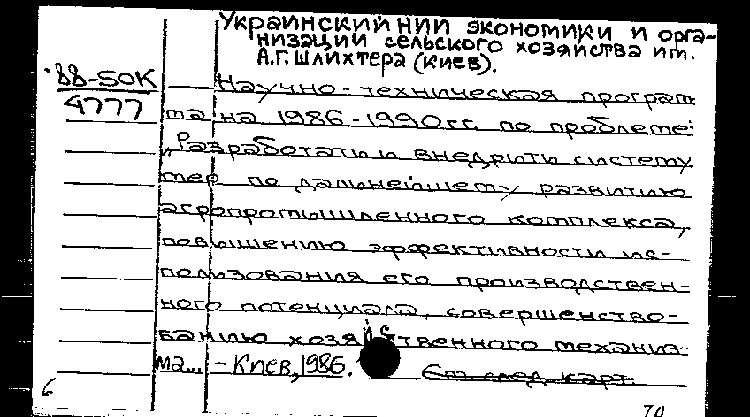 Украинский НИИ экономики и орга-
низации сельского хозяйства им.
А.Г. Шлихтера (Киев).
'88-50К
4777
Научно-техническая програм
ма на 1986-1990 гг. по проблеме:
"Разработать и внедрить систему
мер по дальнейшему развитию
агропромышленного комплекса,
повышению эффективности ис-
пользования его производствен-
ного потенциала, совершенство-
ванию хозяйственного механиз-
ма... - Киев, 1986.
См. след. карт.
6
70